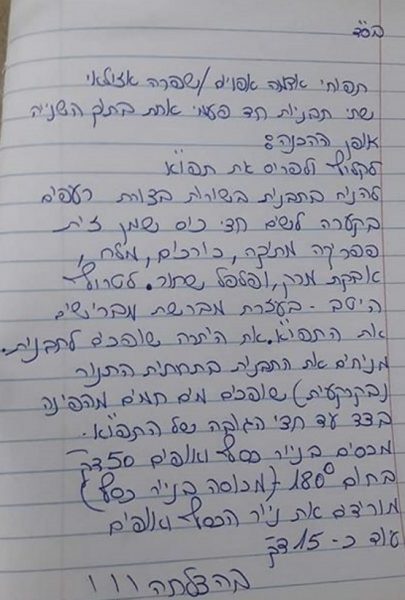 בס"ד
תפוחי אדמה אפויים/שפרה אזולאי
שתי תבניות חד פעמי אחת בתוך השניה
אופן ההכנה:
לקלוף ולפרוס את תפו"א
להניח בתבנית בשורות בצורת רעפים
בקערה לשים חצי כוס שמן זית
פפריקה מתוקה, כורכום, מלח,
אבקת מרק, ופלפל שחור. לטרוף
היטב. בעזרת מברשת מברישים
את התפו"א. את היתרה שופכים לתבנית.
מניחים את התבנית בתחתית התנור
(בקרקעית) שופכים מים חמים מהפינה
בצד עד חצי הגובה של התפו"א.
מכסים בנייר כסף ואופים 50 דק'
בחום 180° (מכוסה בנייר כסף)
מורידים את נייר הכסף ואופים
עוד כ- 15 דק'
בהצלחה !!!